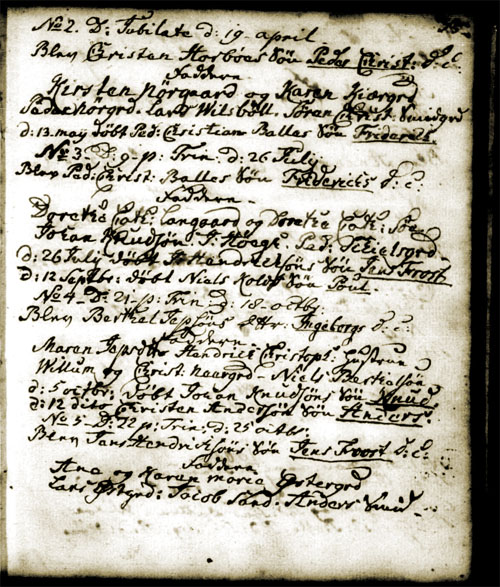 No 2. D: Jubilate d: 19 april
Blev Christen Horboes Søn Peder Christ: d: C:
Faddern
Kirsten Nørgaard og Karen Kiærgrd
Peder Nørgrd. Lars Wilsbøll. Christ: Smidgrd
d: 13. may døbt Ped: Christian Balles Søn Friderich.
No 3. D. 9. p: Trin: d: 26 July
Blev Ped: Christ: Balles Søn Friderich's d: C:
Faddern
Dorethe Cath: Langaard og Dorethe Cath:
Johan Knudsøn J: Høegh. Ped:
d: 26 July døbt J: Hendrichsøns Søn Jens Troost
d: 12 Septbr: døbt Niels Kolds Søn Poul.
No 4. D: 21. p: Trin: d: 18. octbr.
Blev Berthel Jepsøns Dttr: Ingeborgs d: C:
Faddern
Maren Hendrich Christoph:
Willum og Christ. Neergrd. Niels Berthelsøn
d: 5 octbr: døbt Johan Knudsøns Søn Knud
d: 12 dito Christen Andersøn Søn Anders.
No 5. D: 22 p: Trin: d: 25 octbr.
Blev Jens Hendrichsøns Søn Jens Troost d: C:
Faddern
Ane og Karen marie Østergrd
Lars Østgrd: Jacob Sand. Anders Smid